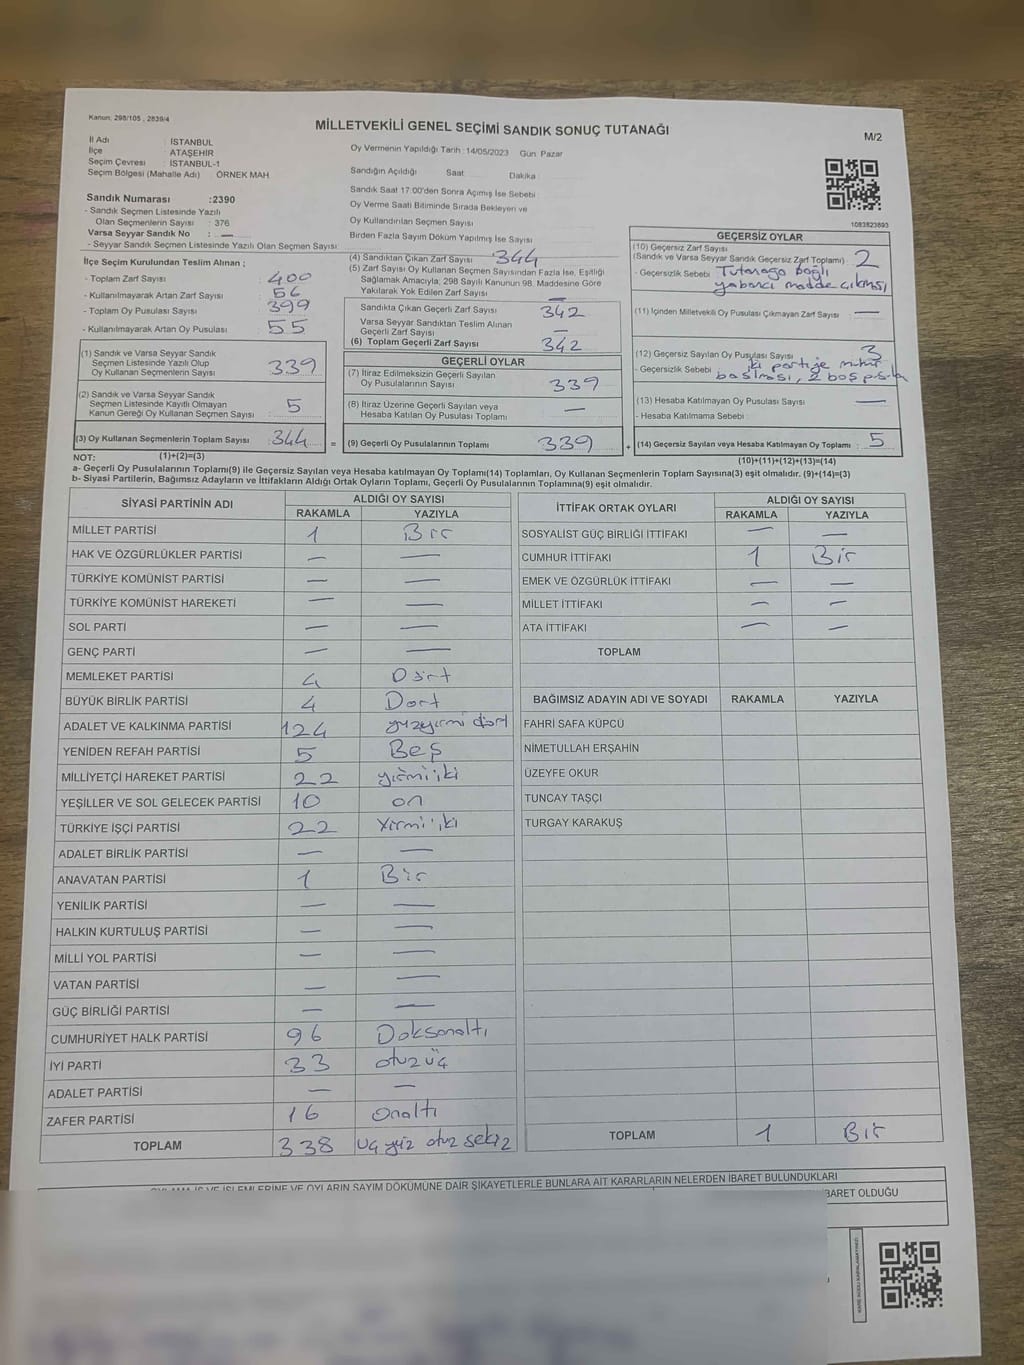 Kanun: 298/105 , 2839/4
MİLLETVEKİLİ GENEL SEÇİMİ SANDIK SONUÇ TUTANAĞI
M/2
İl Adı : İSTANBUL
İlçe : ATAŞEHİR
Seçim Çevresi : İSTANBUL-1
Seçim Bölgesi (Mahalle Adı) : ÖRNEK MAH
Oy Vermenin Yapıldığı Tarih : 14/05/2023 Gün: Pazar
Sandığın Açıldığı Saat Dakika :
Sandık Saat 17:00'den Sonra Açımış İse Sebebi :
Oy Verme Saati Bitiminde Sırada Bekleyen ve
Oy Kullandırılan Seçmen Sayısı
Birden Fazla Sayım Döküm Yapılmış İse Sayısı
Sandık Numarası :2390
- Sandık Seçmen Listesinde Yazılı
Olan Seçmenlerin Sayısı : 376
Varsa Seyyar Sandık No : —
- Seyyar Sandık Seçmen Listesinde Yazılı Olan Seçmen Sayısı
1083823893
İlçe Seçim Kurulundan Teslim Alınan ;
- Toplam Zarf Sayısı : 400
- Kullanılmayarak Artan Zarf Sayısı : 56
- Toplam Oy Pusulası Sayısı : 399
- Kullanılmayarak Artan Oy Pusulası : 55
(1) Sandık ve Varsa Seyyar Sandık
Seçmen Listesinde Yazılı Olup
Oy Kullanan Seçmenlerin Sayısı : 339
(2) Sandık ve Varsa Seyyar Sandık
Seçmen Listesinde Kayıtlı Olmayan
Kanun Gereği Oy Kullanan Seçmen Sayısı : 5
(3) Oy Kullanan Seçmenlerin Toplam Sayısı : 344 =
(4) Sandıktan Çıkan Zarf Sayısı : 344
(5) Zarf Sayısı Oy Kullanan Seçmen Sayısından Fazla İse, Eşitliği
Sağlamak Amacıyla, 298 Sayılı Kanunun 98. Maddesine Göre
Yakılarak Yok Edilen Zarf Sayısı —
Sandıkta Çıkan Geçerli Zarf Sayısı : 342
Varsa Seyyar Sandıktan Teslim Alınan
Geçerli Zarf Sayısı —
(6) Toplam Geçerli Zarf Sayısı : 342
GEÇERLİ OYLAR
(7) İtiraz Edilmeksizin Geçerli Sayılan
Oy Pusulalarının Sayısı : 339
(8) İtiraz Üzerine Geçerli Sayılan veya
Hesaba Katılan Oy Pusulası Toplamı : —
(9) Geçerli Oy Pusulalarının Toplamı 339 +
GEÇERSİZ OYLAR
(10) Geçersiz Zarf Sayısı
(Sandık ve Varsa Seyyar Sandık Geçersiz Zarf Toplamı) : 2
- Geçersizlik Sebebi : Tutanağa bağlı
yabancı madde çıkması
(11) İçinden Milletvekili Oy Pusulası Çıkmayan Zarf Sayısı : —
(12) Geçersiz Sayılan Oy Pusulası Sayısı : 3
- Geçersizlik Sebebi : iki partiye mühür
basılması, 2 boş
(13) Hesaba Katılmayan Oy Pusulası Sayısı : —
- Hesaba Katılmama Sebebi :
(14) Geçersiz Sayılan veya Hesaba Katılmayan Oy Toplamı : 5
NOT: (1)+(2)=(3)
(10)+(11)+(12)+(13)=(14)
a- Geçerli Oy Pusulalarının Toplamı(9) ile Geçersiz Sayılan veya Hesaba katılmayan Oy Toplamı(14) Toplamları, Oy Kullanan Seçmenlerin Toplam Sayısına(3) eşit olmalıdır. (9)+(14)=(3)
b- Siyasi Partilerin, Bağımsız Adayların ve İttifakların Aldığı Ortak Oyların Toplamı, Geçerli Oy Pusulalarının Toplamına(9) eşit olmalıdır.
SİYASİ PARTİNİN ADI ALDIĞI OY SAYISI
RAKAMLA YAZIYLA
MİLLET PARTİSİ 1 Bir
HAK VE ÖZGÜRLÜKLER PARTİSİ — —
TÜRKİYE KOMÜNİST PARTİSİ — —
TÜRKİYE KOMÜNİST HAREKETİ — —
SOL PARTİ — —
GENÇ PARTİ — —
MEMLEKET PARTİSİ 4 Dört
BÜYÜK BİRLİK PARTİSİ 4 Dort
ADALET VE KALKINMA PARTİSİ 124 yüzyirmi dört
YENİDEN REFAH PARTİSİ 5 Beş
MİLLİYETÇİ HAREKET PARTİSİ 22 yirmi iki
YEŞİLLER VE SOL GELECEK PARTİSİ 10 on
TÜRKİYE İŞÇİ PARTİSİ 22 Yirmi iki
ADALET BİRLİK PARTİSİ — —
ANAVATAN PARTİSİ 1 Bir
YENİLİK PARTİSİ — —
HALKIN KURTULUŞ PARTİSİ — —
MİLLİ YOL PARTİSİ — —
VATAN PARTİSİ — —
GÜÇ BİRLİĞİ PARTİSİ — —
CUMHURİYET HALK PARTİSİ 96 Doksanaltı
İYİ PARTİ 33 otuzüç
ADALET PARTİSİ — —
ZAFER PARTİSİ 16 Onaltı
TOPLAM 338 üç yüz otuz sekiz
İTTİFAK ORTAK OYLARI ALDIĞI OY SAYISI
RAKAMLA YAZIYLA
SOSYALİST GÜÇ BİRLİĞİ İTTİFAKI — —
CUMHUR İTTİFAKI 1 Bir
EMEK VE ÖZGÜRLÜK İTTİFAKI — —
MİLLET İTTİFAKI — —
ATA İTTİFAKI — —
TOPLAM
BAĞIMSIZ ADAYIN ADI VE SOYADI RAKAMLA YAZIYLA
FAHRİ SAFA KÜPCÜ
NİMETULLAH ERŞAHİN
ÜZEYFE OKUR
TUNCAY TAŞÇI
TURGAY KARAKUŞ
TOPLAM 1 Bir
OYLAMA İŞ VE İŞLEMLERİNE VE OYLARIN SAYIM DÖKÜMÜNE DAİR ŞİKAYETLERLE BUNLARA AİT KARARLARIN NELERDEN İBARET BULUNDUKLARI
İBARET OLDUĞU